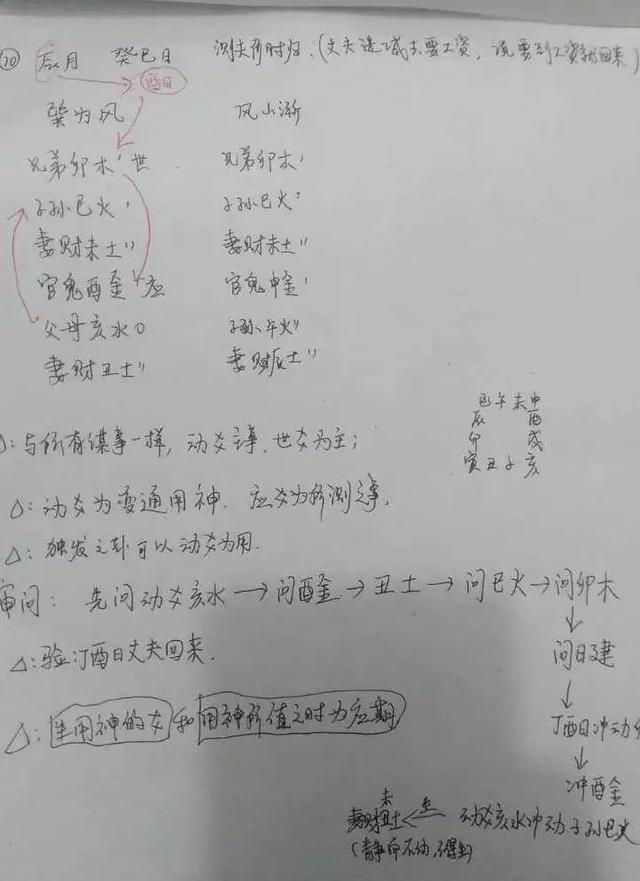 ⑩ 辰月 癸巳日 测夫何时归:(丈夫进城去要工资,说要到工资就回来)
临日
巽为风 风山渐
兄弟卯木' 世 兄弟卯木'
子孙巳火' 子孙巳火'
妻财未土'' 妻财未土''
官鬼酉金' 应 官鬼申金'
父母亥水O 子孙午火''
妻财丑土'' 妻财辰土''
巳午未申
辰 酉
卯 戌
寅丑子亥
△:与所有谋事一样,动爻主事,世爻为主;
△:动爻为变通用神.应爻为所测之事.
△:独发之卦可以动爻为用.
审问:先问动爻亥水→问酉金→丑土→问巳火→问卯木
↓
问日建
△:验:丁酉日丈夫回来.
↓
丁酉日冲动
△:生用神的爻和用神所值之时为应期
↓
冲酉金
未
妻财丑土 生 动爻亥水冲动子孙巳火